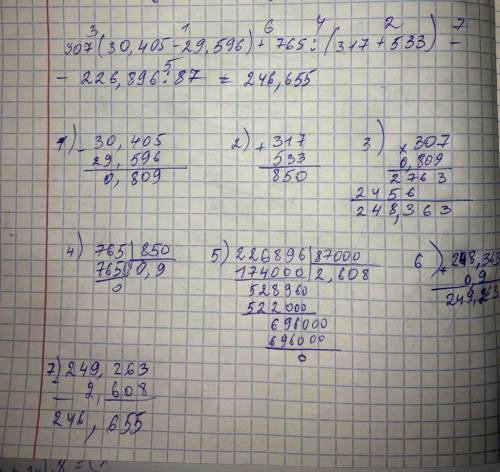 3 1 6 4 2 7
307(30,405-29,596)+765:(317+533)-
5
- 226,896:87 = 246,655
1) - 30,405
29,596
0,809
2) + 317
533
850
3) × 307
0,809
2763
2456
248,363
4) 765 | 850
7650 | 0,9
0
5) 226896 | 87000
174000 | 2,608
528960
522000
696000
696000
0
6) + 248,363
0,9
249,263
7) 249,263
- 2,608
246,655